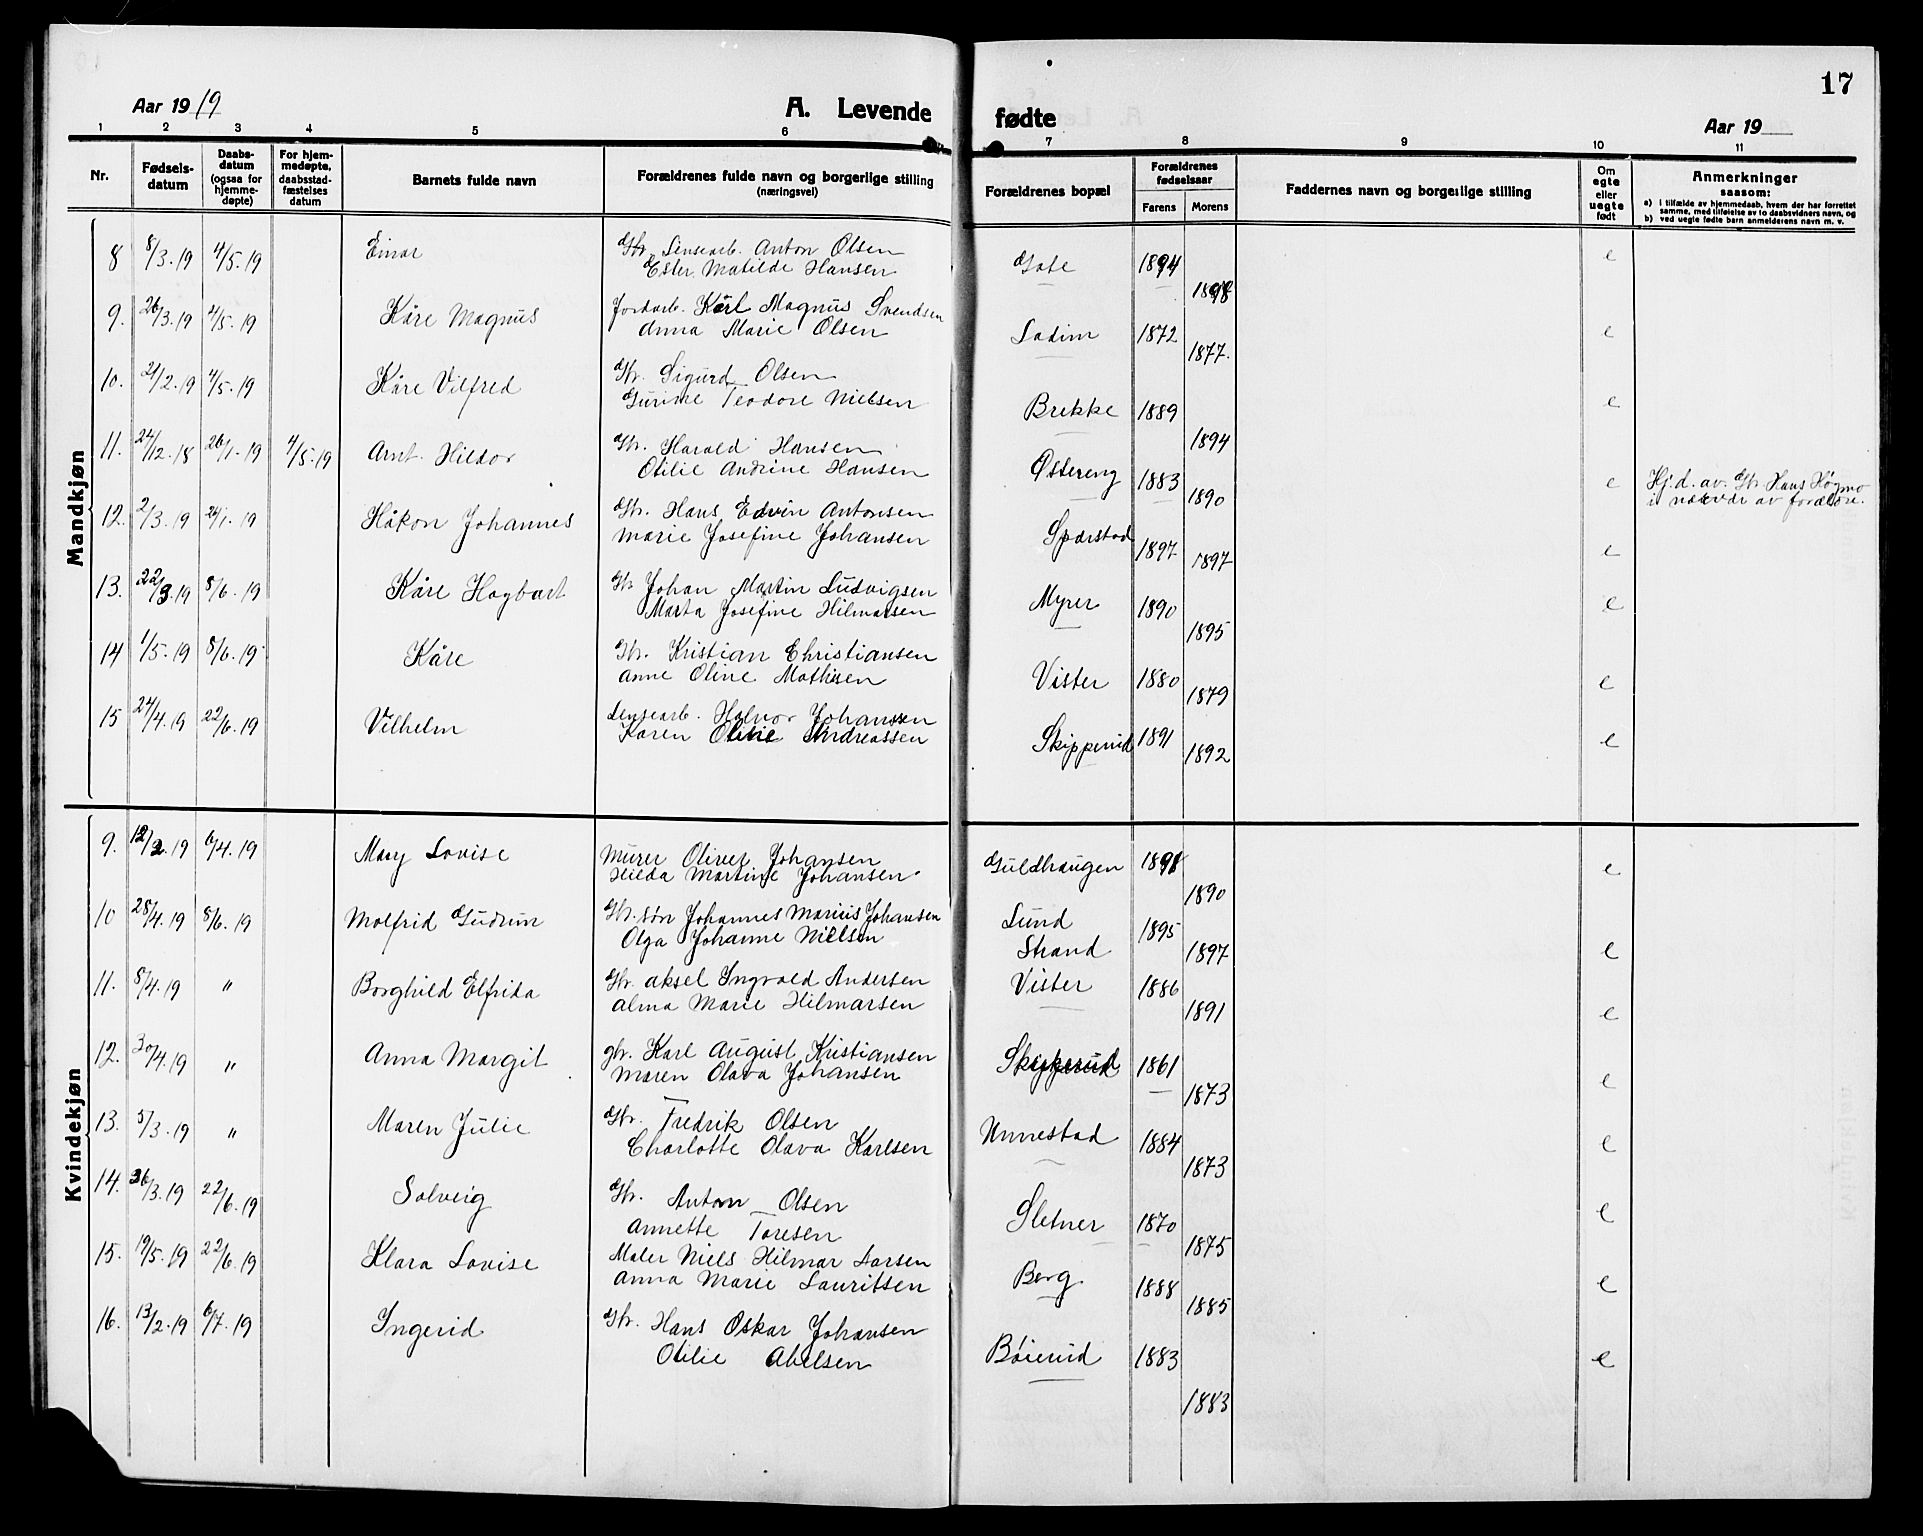 17
Aar 1919 A. Levende fødte Aar 19
1 2 3 4 5 6 7 8 9 10 11
Nr.
Fødsels-datum
Daabs-datum (ogsaa for hjemme-døpte)
For hjem-medøpte, daabsstad-fæstelses datum
Barnets fulde navn
Forældrenes fulde navn og borgerlige stilling (næringsvei)
Forældrenes bopæl
Forældrenes fødselsaar
Farens Morens
Faddernes navn og borgerlige stilling
Om egte eller uegte født
Anmerkninger saasom:
a) i tilfælde av hjemmedaab, hvem der har forrettet samme, med tilføielse av to daabsvidners navn, og
b) ved uegte fødte barn anmelderens navn m. v.
Mandkjøn
8 8/3.19 4/5.19 Einar Gbr. Lensearb. Anton Olsen Gate 1894 e
Ester Matilde Hansen 1898
9. 26/3.19 4/5.19 Kåre Magnus Jordarb. Karl Magnus Svendsen 1872 e
Anna Marie Olsen 1877.
10. 21/2.19 4/5.19 Kåre Vilfred Gbr. Sigurd Olsen Brekke 1889 e
Gurine Teodore Nielsen 1894
11. 24/12.18 26/1.19 4/5.19 Arnt Hildor Gbr. Harald Hansen Østereng 1883 e Hj.d. av Gbr Hans Høgmo
Otilie Andrine Hansen 1890 i nærvær av forældre.
12. 2/3.19 26/1.19 Håkon Johannes Gbr. Hans Edvin Antonsen Sparstad 1897 e
Marie Josefine Johansen 1897
13. 22/3.19 8/6.19 Kåre Hagbart Gbr Johan Martin Ludvigsen Myrer 1890 e
Marta Josefine Hilmarsen 1895
14 1/5.19 8/6.19 Kåre Gbr. Kristian Christiansen Vister 1880 e
Anne Oline Mathisen 1879
15 24/4.19 22/6.19 Vilhelm Lensearb. Halvor Johanssen Skipperud 1891 e
Karen Andreassen 1892
Kvindekjøn
9. 12/2.19 6/4.19 Mary Lovise Murer Oliver Johansen Guldhaugen 1891 e
Hilda Martine Johansen 1890
10 28/4.19 8/6.19 Molfrid Gudrun Gbr. søn Johannes Marius Johansen Lund 1895
Olga Johanne Nielsen Strand 1897 e
11. 8/4.19 " Borghild Elfrida Gbr. Aksel Ingvald Andersen Vister 1886
Alma Marie Hilmarsen 1891 e
12. 30/4.19 " Anna Margit gbr. Karl August Kristiansen Skipperud 1861
Maren Olava Johansen 1873 e
13. 5/3.19 " Maren Julie Gbr. Fredrik Olsen Unnestad 1884 e
Charlotte Olava Karlsen 1873
14. 26/3.19 22/6.19 Solveig Gbr. Anton Olsen Sletner 1870 e
Annette Toresen 1875
15. 19/5.19 22/6.19 Klara Lovise Maler Niels Hilmar Larsen Berg 1888 e
Anna Marie Lauritsen 1885
16. 13/2.19 6/7.19 Ingerid Gbr. Hans Oskar Johansen Bøierud 1883 e
Otilie Abelsen 1883